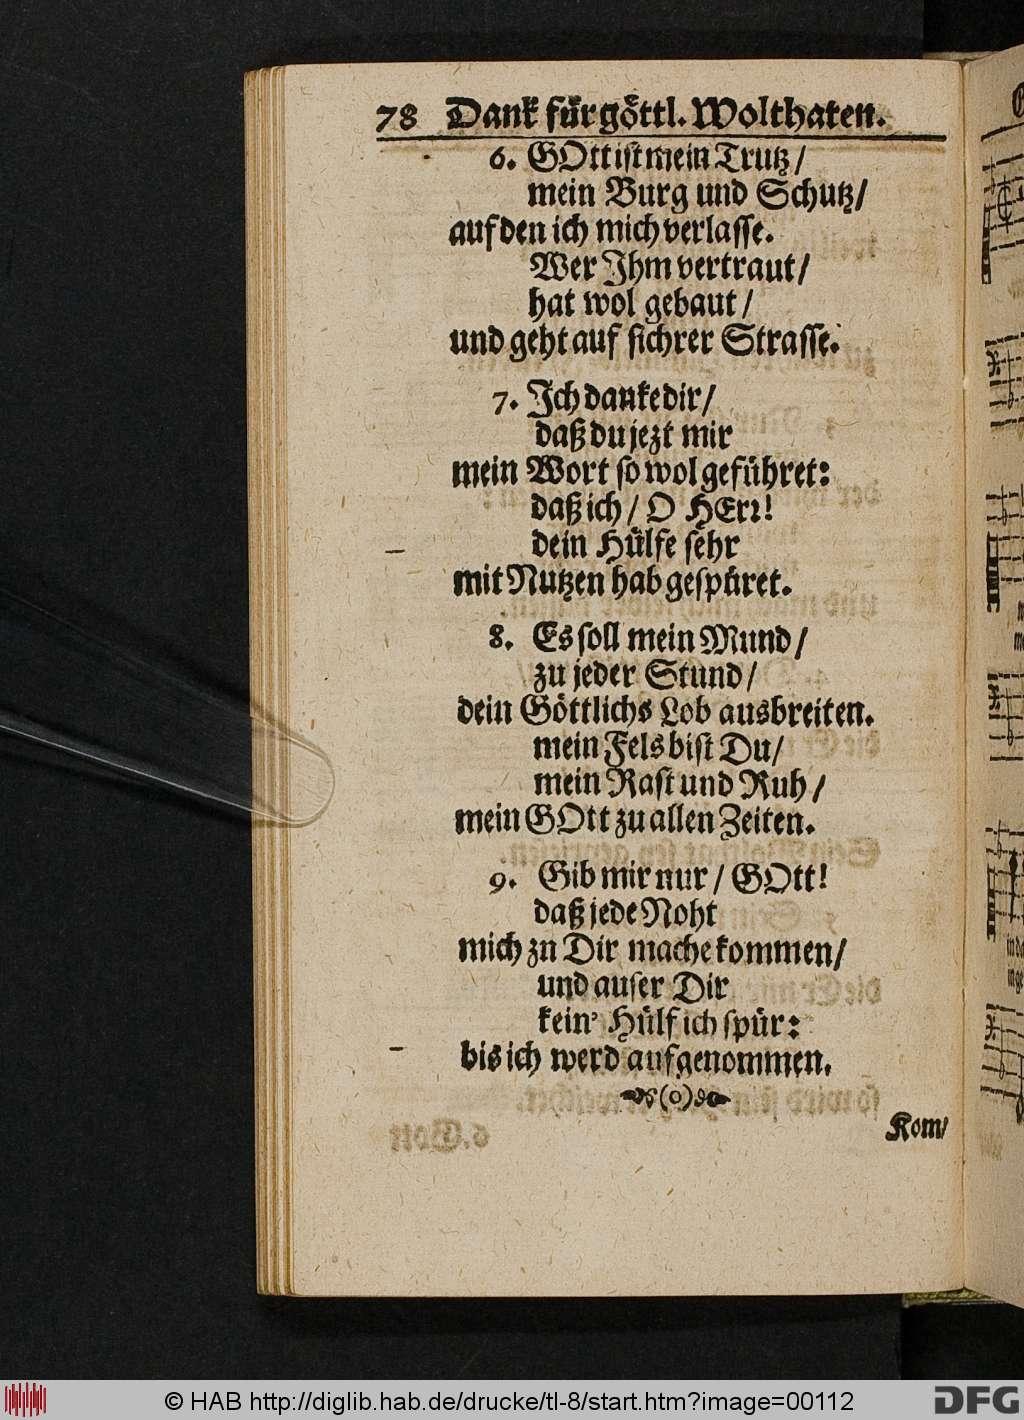 78 Dank für göttl. Wolthaten.
6. GOtt ist mein Trutz /
mein Burg und Schutz /
auf den ich mich verlasse.
Wer Jhm vertraut /
hat wol gebaut /
und geht auf sichrer Strasse.
7. Jch danke dir /
daß du jezt mir
mein Wort so wol geführet:
daß ich / O HErr!
dein Hülfe sehr
mit Nutzen hab gespüret.
8. Es soll mein Mund /
zu jeder Stund /
dein Göttlichs Lob ausbreiten.
mein Fels bist Du /
mein Rast und Ruh /
mein GOtt zu allen Zeiten.
9. Gib mir nur / GOtt!
daß jede Noht
mich zu Dir mache kommen /
und auser Dir
kein' Hülf ich spür:
bis ich werd aufgenommen.
(o)
Kom /
© HAB http://diglib.hab.de/drucke/tl-8/start.htm?image=00112
DFG